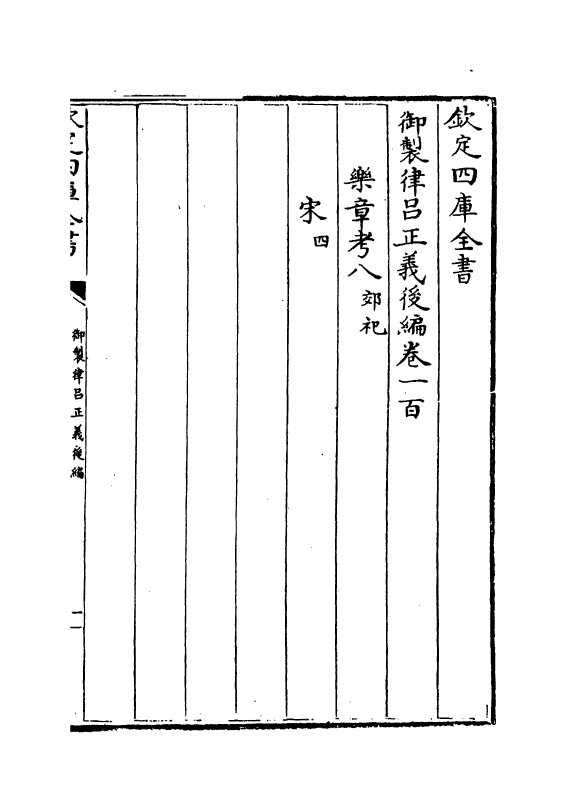 欽定四庫全書
御製律呂正義後編卷一百
樂章考八 郊祀
宋四
欽定四庫全書
御製律呂正義後編